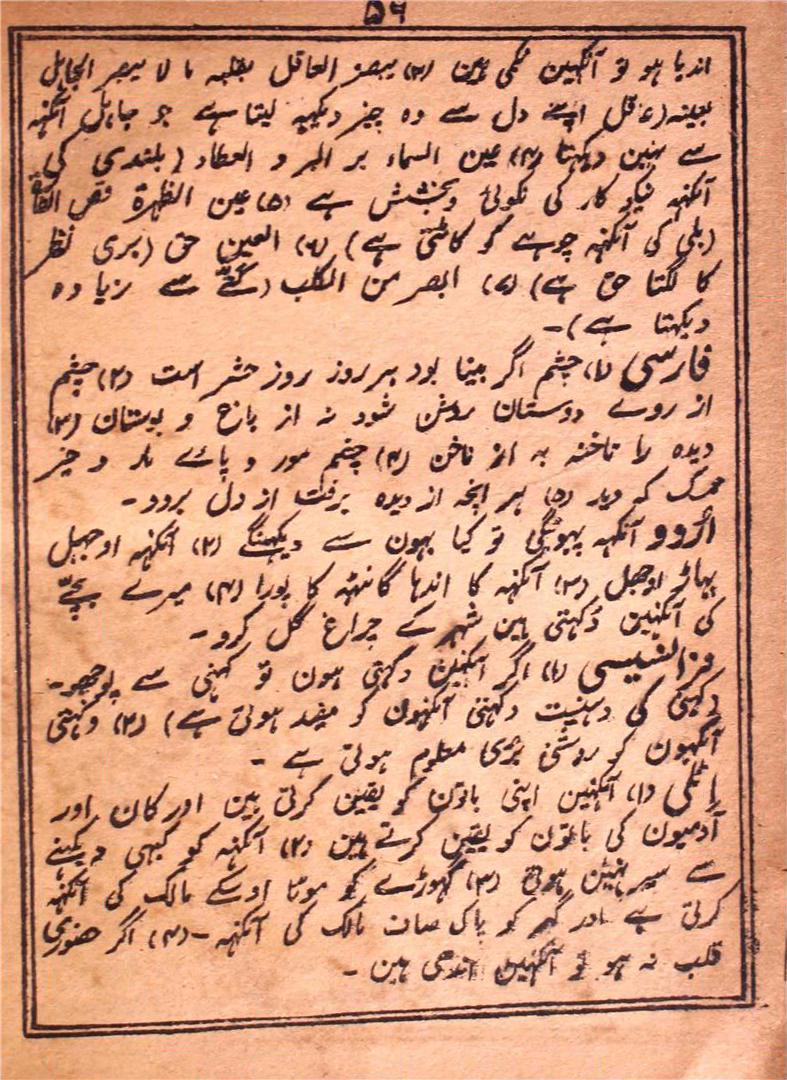 ۵۶
اندہا ہو تو آنکہین نکمی ہین (۳) یبصر العاقل بقلبہ ما لا یبصر الجاہل
بعینہ (عاقل اپنے دل سے وہ چیز دیکہہ لیتا ہے جو جاہل آنکہہ
سے نہین دیکہتا (۴) عین السماء بر البر و العطاء (بلندی کی
آنکہہ نیک کار کی نکوئی و بخشش ہے (۵) عین الظہرۃ
(بلی کی آنکہہ چوہے کو کاٹتی ہے) (۶) العین حق (بری نظر
کا لگنا حق ہے) (۷) ابصر من الکلب (کتّے سے زیادہ
دیکہتا ہے)۔
فارسی (۱) چشم اگر بینا بود ہر روز روز حشر است (۲) چشم
از روے دوستان روشن شود نہ از باغ و بوستان (۳)
دیدہ را ناخنہ بہ از ناخن (۴) چشم مور و پاے مار و خیر
کہ دید (۵) ہر انچہ از دیدہ برفت از دل برود۔
اردو آنکہہ پہوٹیگی تو کیا بہون سے دیکہینگے (۲) آنکہہ اوجہل
پہاڑ اوجہل (۳) آنکہہ کا اندہا گانٹہہ کا پورا (۴) میرے بچّے
کی آنکہین دُکہتی ہین شہر کے چراغ گل کرو۔
فرانسیسی (۱) اگر آنکہین دکہتی ہون تو کہنی سے پونچہو۔
کی دہنیت دکہتی آنکہون کو مفید ہوتی ہے) (۲) دکہتی
آنکہون کو روشنی بڑی معلوم ہوتی ہے۔
اٹلی (۱) آنکہین اپنی باتون کو یقین کرتی ہین اور کان اور
آدمیون کی باتون کو یقین کرتے ہین (۲) آنکہہ کو کبہی دیکہنے
سے سیر نہین ہوتی (۳) گہوڑے کو موٹا اوسکے مالک کی آنکہہ
کرتی ہے اور گہر کو پاک صاف مالک کی آنکہہ۔ (۴) اگر حضوری
قلب نہ ہو تو آنکہین اندہی ہین۔